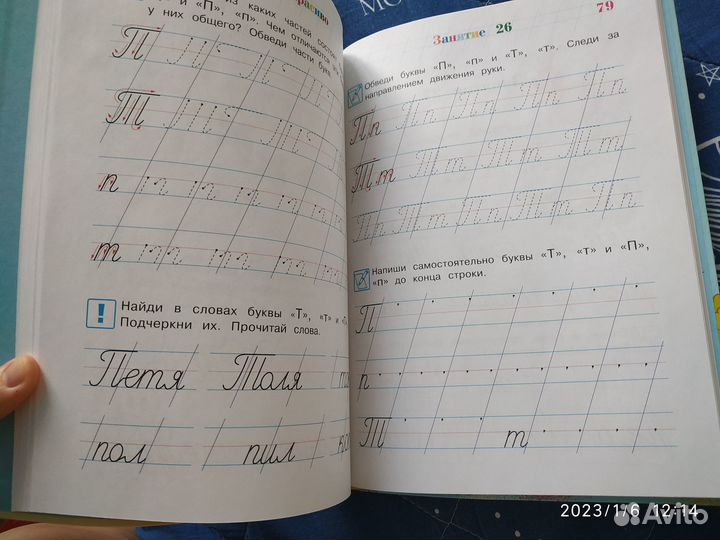 из каких частей состоят
и «П», «п». Чем отличаются
у них общего? Обведи части букв.
П
Т
п
т
Найди в словах буквы «Т», «т» и
Подчеркни их. Прочитай слова.
Петя Толя
пол пил
Занятие 26
79
Обведи буквы «П», «п» и «Т», «т». Следи за
направлением движения руки.
Пп Пп Пп Пп Пп
Тт Тт Тт Тт Тт
Пп Тт Пп Тт Пп
Напиши самостоятельно буквы «Т», «т» и «П»,
«п» до конца строки.
П
п
Т т
2023/1/6 12:14
Avito